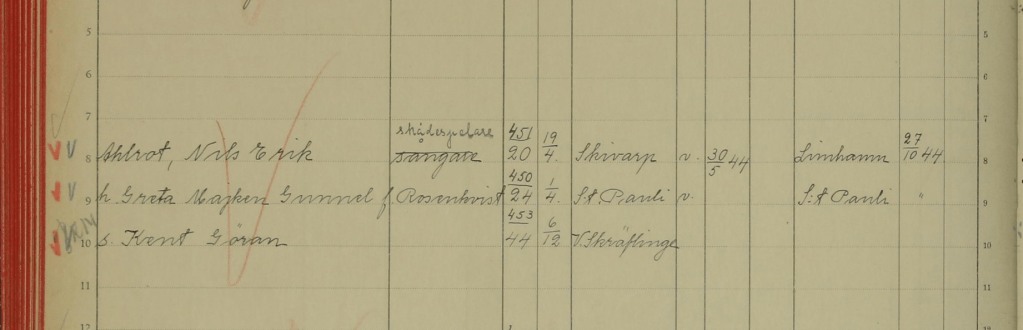 5 5
6 6
7 7
skådespelare 451 19 27
8 Ahlrot, Nils Erik sångare 20 4. Skivarp v. 30/5 44 Limhamn 10 44 8
450 1
9 h. Greta Majken Gunnel f. Rosenkvist 24 4. S:t Pauli v. S:t Pauli " 9
453 6
10 s. Kent Göran 44 12 V Skräflinge 10
11 11
12